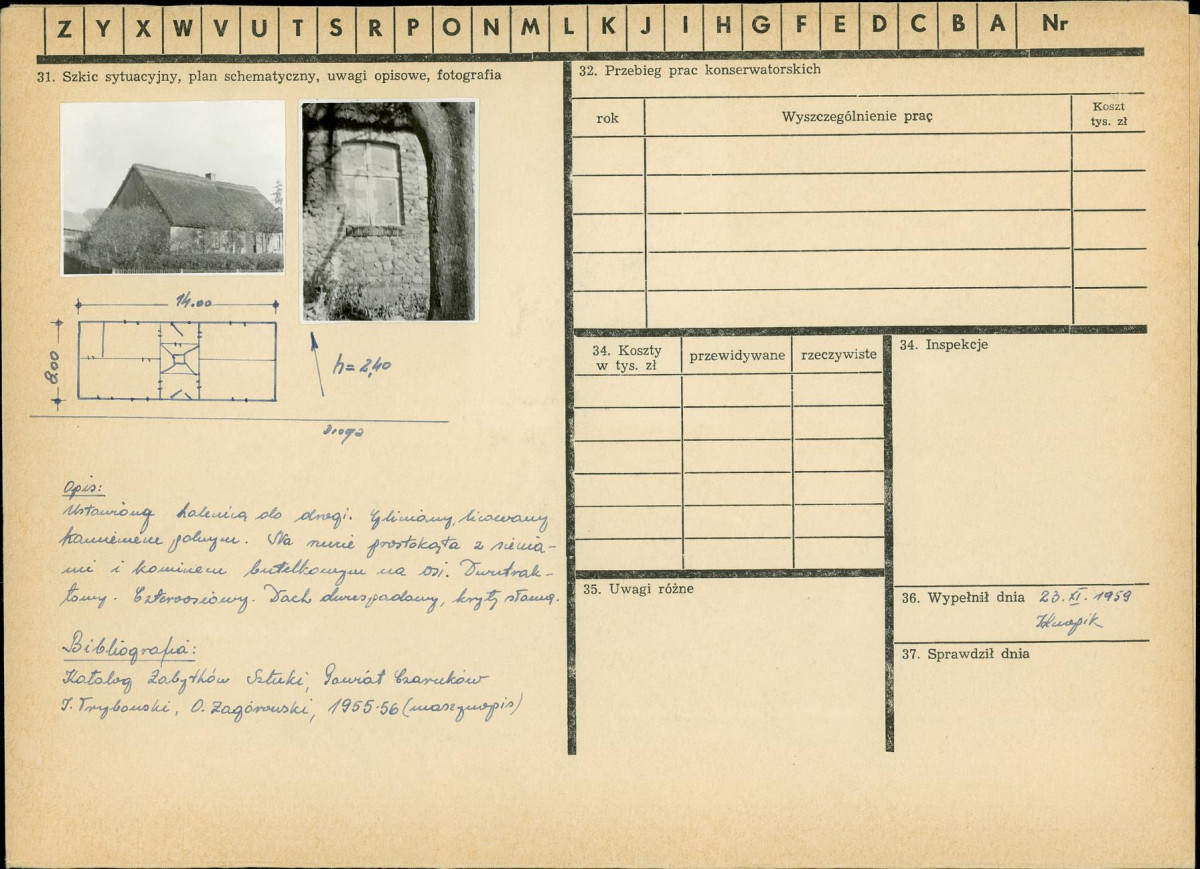 Z Y X W V U T S R P O N M L K J I H G F E D C B A Nr
31. Szkic sytuacyjny, plan schematyczny, uwagi opisowe, fotografia
14.00
8.00
h = 2,40
droga
Opis:
Ustawiony kalenicą do drogi. Gliniany, licowany
kamieniem polnym. Na rzucie prostokąta z sienia-
mi i kominem butelkowym na osi. Dwutrak-
towy. Czteroosiowy. Dach dwuspadowy, kryty słomą.
Bibliografia:
Katalog Zabytków Sztuki, Powiat Czarnków
O. Zagórowski, 1955-56 (maszynopis)
32. Przebieg prac konserwatorskich
rok
Wyszczególnienie prac
Koszt
tys. zł
34. Koszty
w tys. zł
przewidywane
rzeczywiste
34. Inspekcje
35. Uwagi różne
36. Wypełnił dnia 23.XI.1959
37. Sprawdził dnia